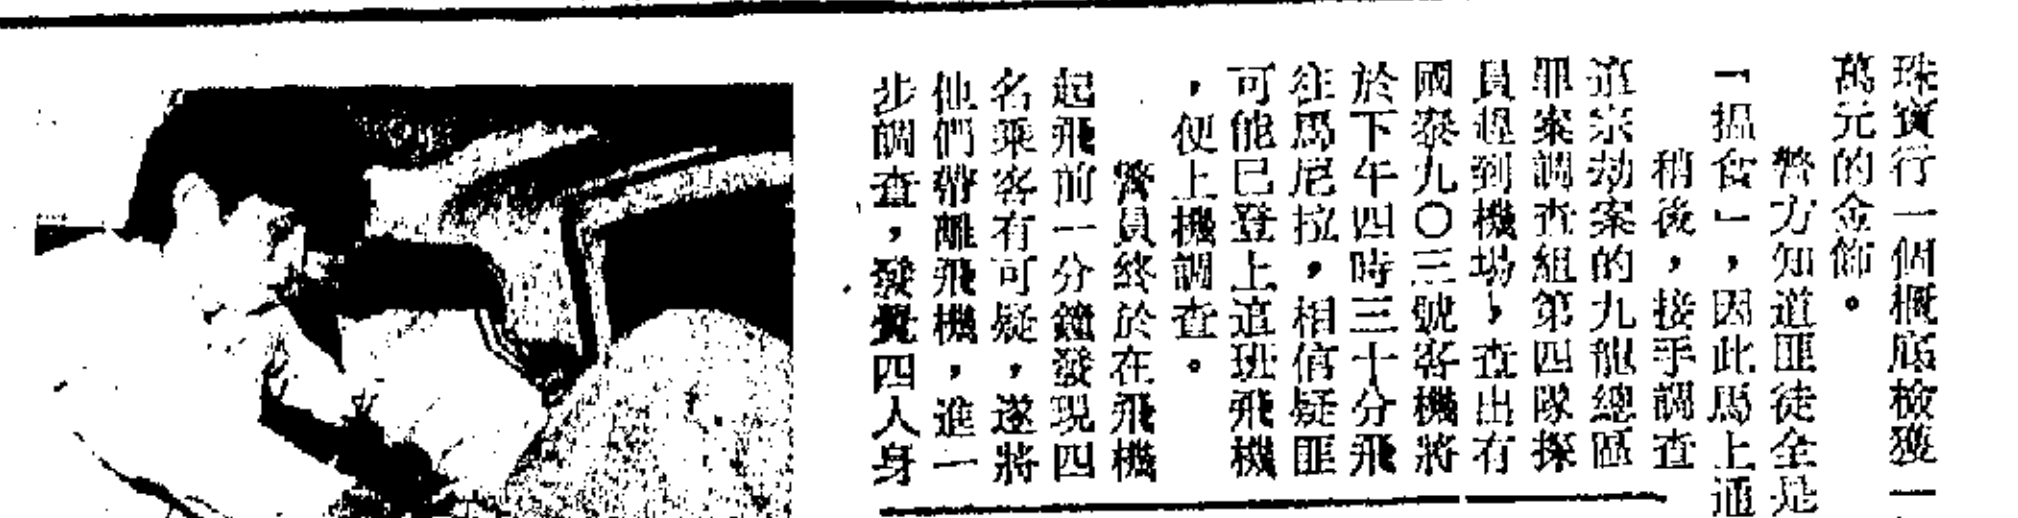 珠寶行一個櫃底檢獲一
萬元的金飾。
警方知道匪徒全是
「搵食」，因此馬上通
稍後，接手調查
這宗劫案的九龍總區
罪案調查組第四隊探
員趕到機場，查出有
國泰九〇三號客機將
於下午四時三十分飛
往馬尼拉，相信疑匪
可能已登上這班飛機
，便上機調查。
警員終於在飛機
起飛前一分鐘發現四
名乘客有可疑，遂將
他們帶離飛機，進一
步調查，發覺四人身